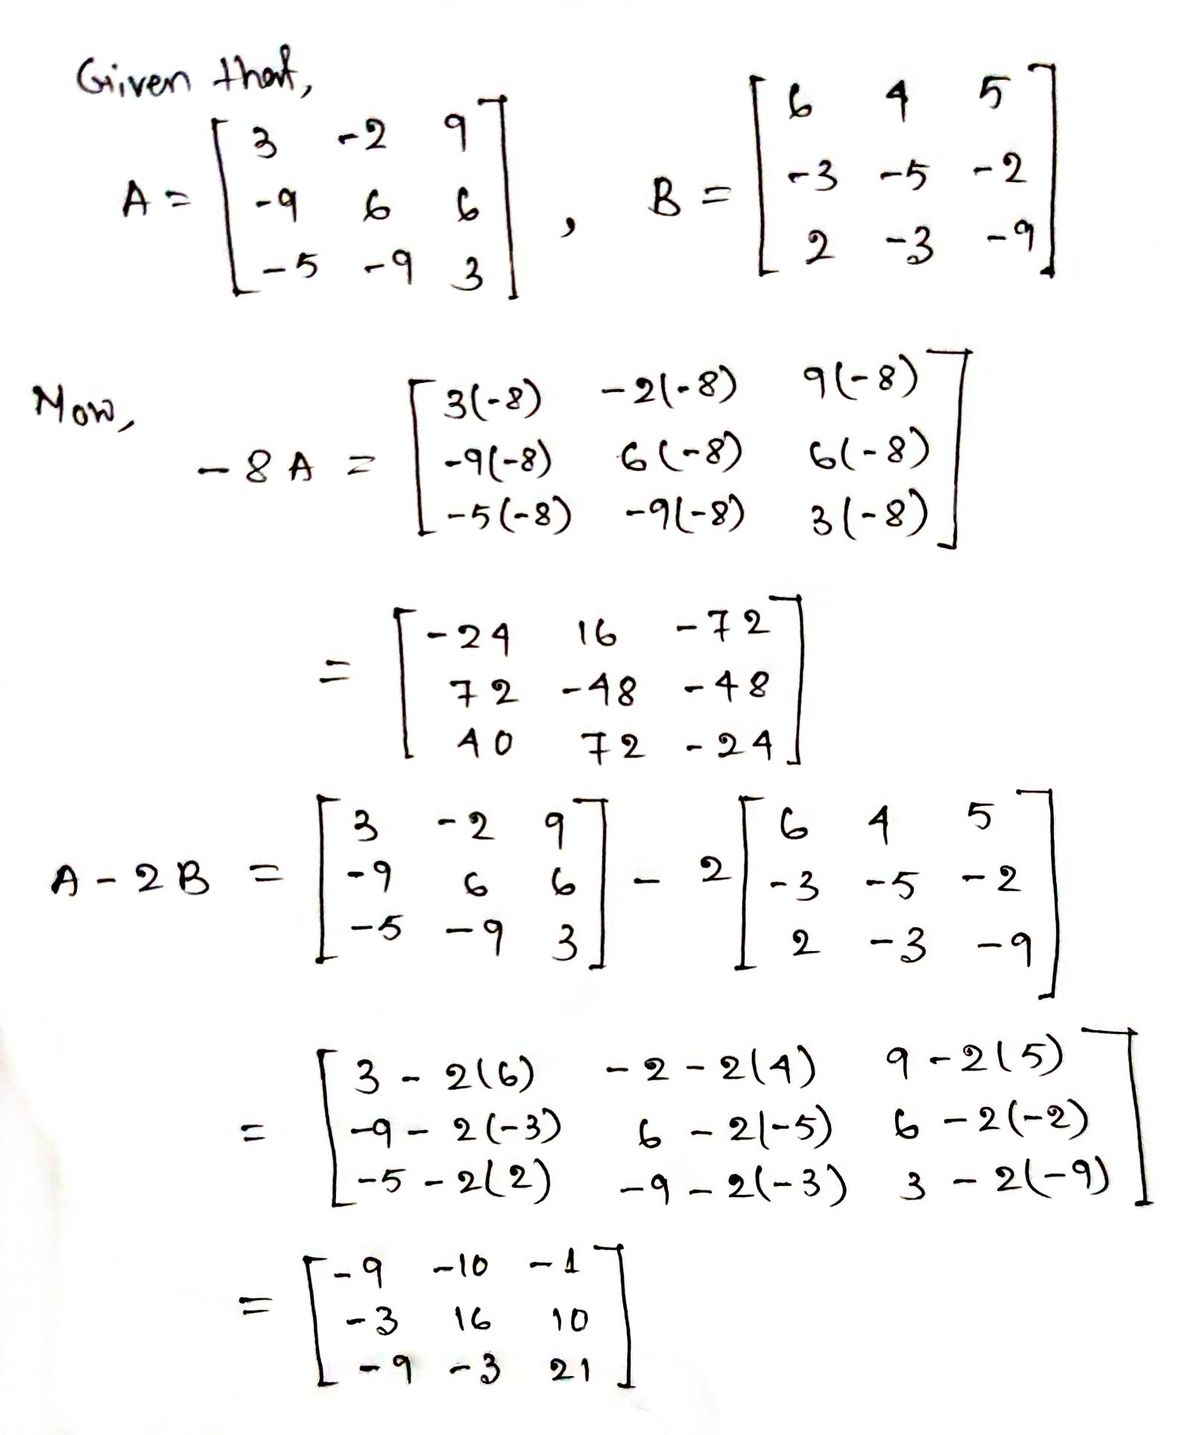 Given that,
A = [ 3 -2 9
-9 6 6
-5 -9 3 ] , B = [ 6 4 5
-3 -5 -2
2 -3 -9 ]
Now,
-8A = [ 3(-8) -2(-8) 9(-8)
-9(-8) 6(-8) 6(-8)
-5(-8) -9(-8) 3(-8) ]
= [ -24 16 -72
72 -48 -48
40 72 -24 ]
A - 2B = [ 3 -2 9
-9 6 6
-5 -9 3 ] - 2 [ 6 4 5
-3 -5 -2
2 -3 -9 ]
= [ 3 - 2(6) -2 - 2(4) 9 - 2(5)
-9 - 2(-3) 6 - 2(-5) 6 - 2(-2)
-5 - 2(2) -9 - 2(-3) 3 - 2(-9) ]
= [ -9 -10 -1
-3 16 10
-9 -3 21 ]